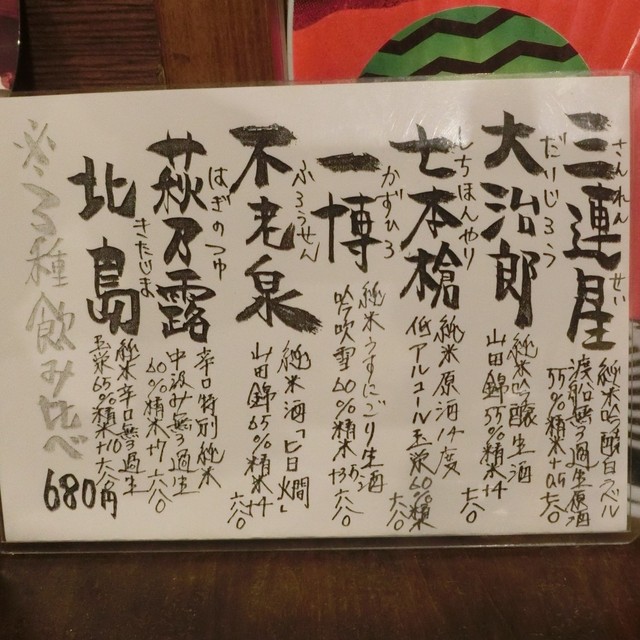 三連星
さんれんせい
純米吟醸白ラベル
渡船無ろ過生原酒
55%精米+0.5 七八〇
大治郎
だいじろう
純米吟醸生酒
山田錦55%精米+4
七八〇
七本槍
しちほんやり
純米原酒14度
低アルコール玉栄60%精米
七八〇
一博
かずひろ
純米うすにごり生酒
吟吹雪60%精米+3.5
六八〇
不老泉
ふろうせん
純米酒「七日燗」
山田錦65%精米+4
六八〇
萩乃露
はぎのつゆ
辛口特別純米
中汲み無ろ過生
60%精米+7 六八〇
北島
きたじま
純米辛口無ろ過生
玉栄65%精米+10 六八〇
※3種飲み比べ
680円